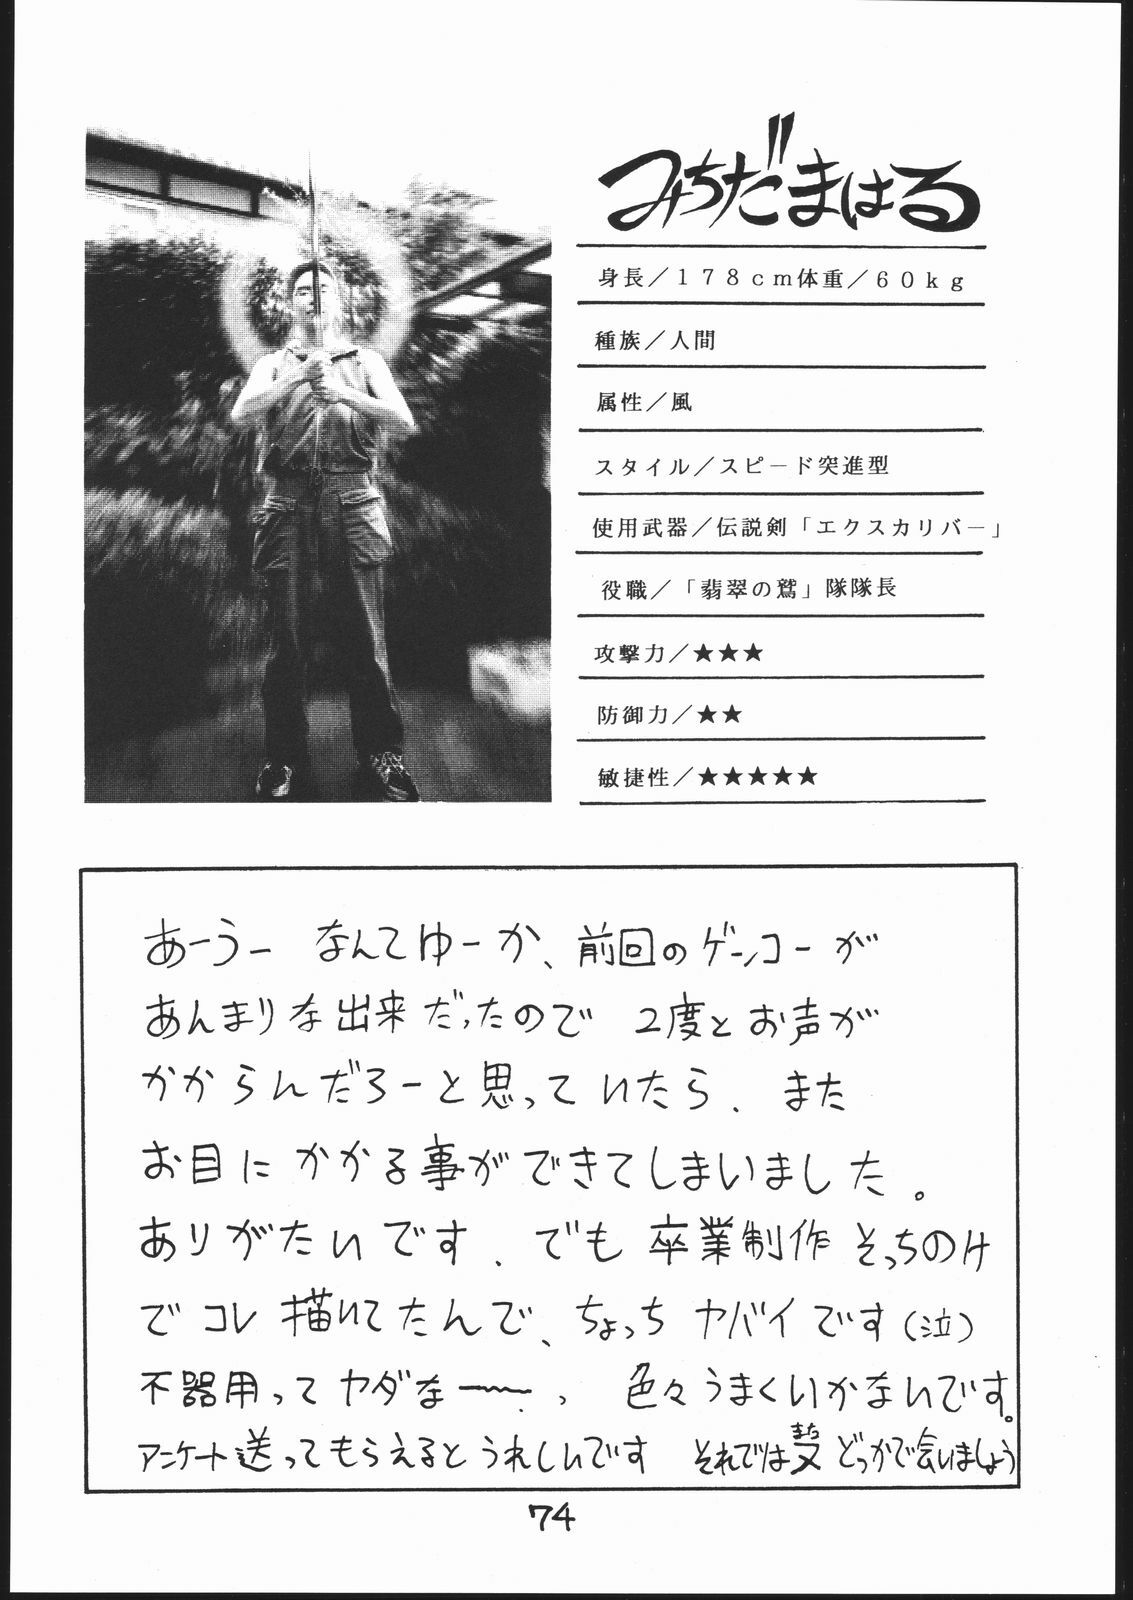 みちだまはる
身長／１７８ｃｍ体重／６０ｋｇ
種族／人間
属性／風
スタイル／スピード突進型
使用武器／伝説剣「エクスカリバー」
役職／「翡翠の鷲」隊隊長
攻撃力／★★★
防御力／★★
敏捷性／★★★★★
あーうー なんてゆーか、前回のゲンコーが
あんまりな出来だったので 2度とお声が
かからんだろーと思っていたら、また
お目にかかる事ができてしまいました。
ありがたいです、でも 卒業制作 そっちのけ
でコレ描いてたんで、ちょっちヤバイです(泣)
不器用ってヤダな〜っ 色々うまくいかないです。
アンケート送ってもらえるとうれしいです それでは又またどっかで会いましょう
74